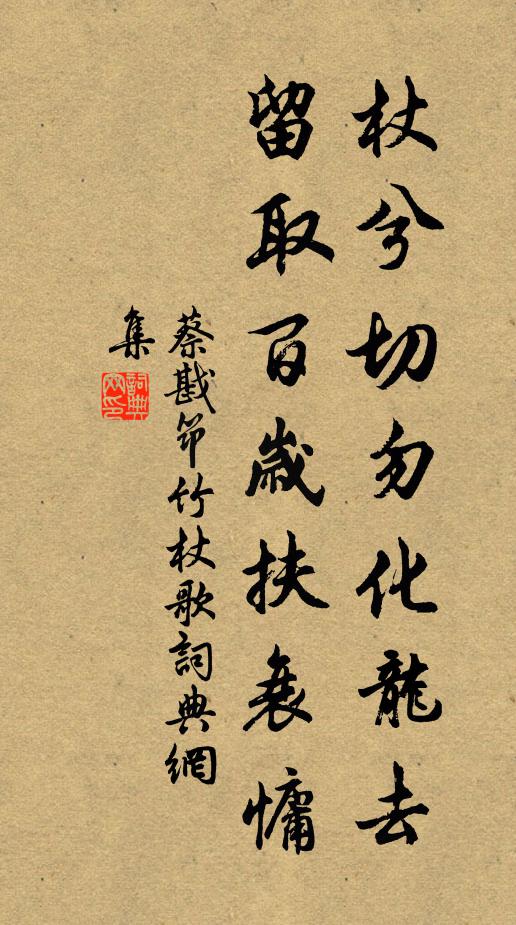 杖兮切勿化龍去
留取百歲扶衰慵
蔡戡筇竹杖歌詞典網
集
詞典
網印